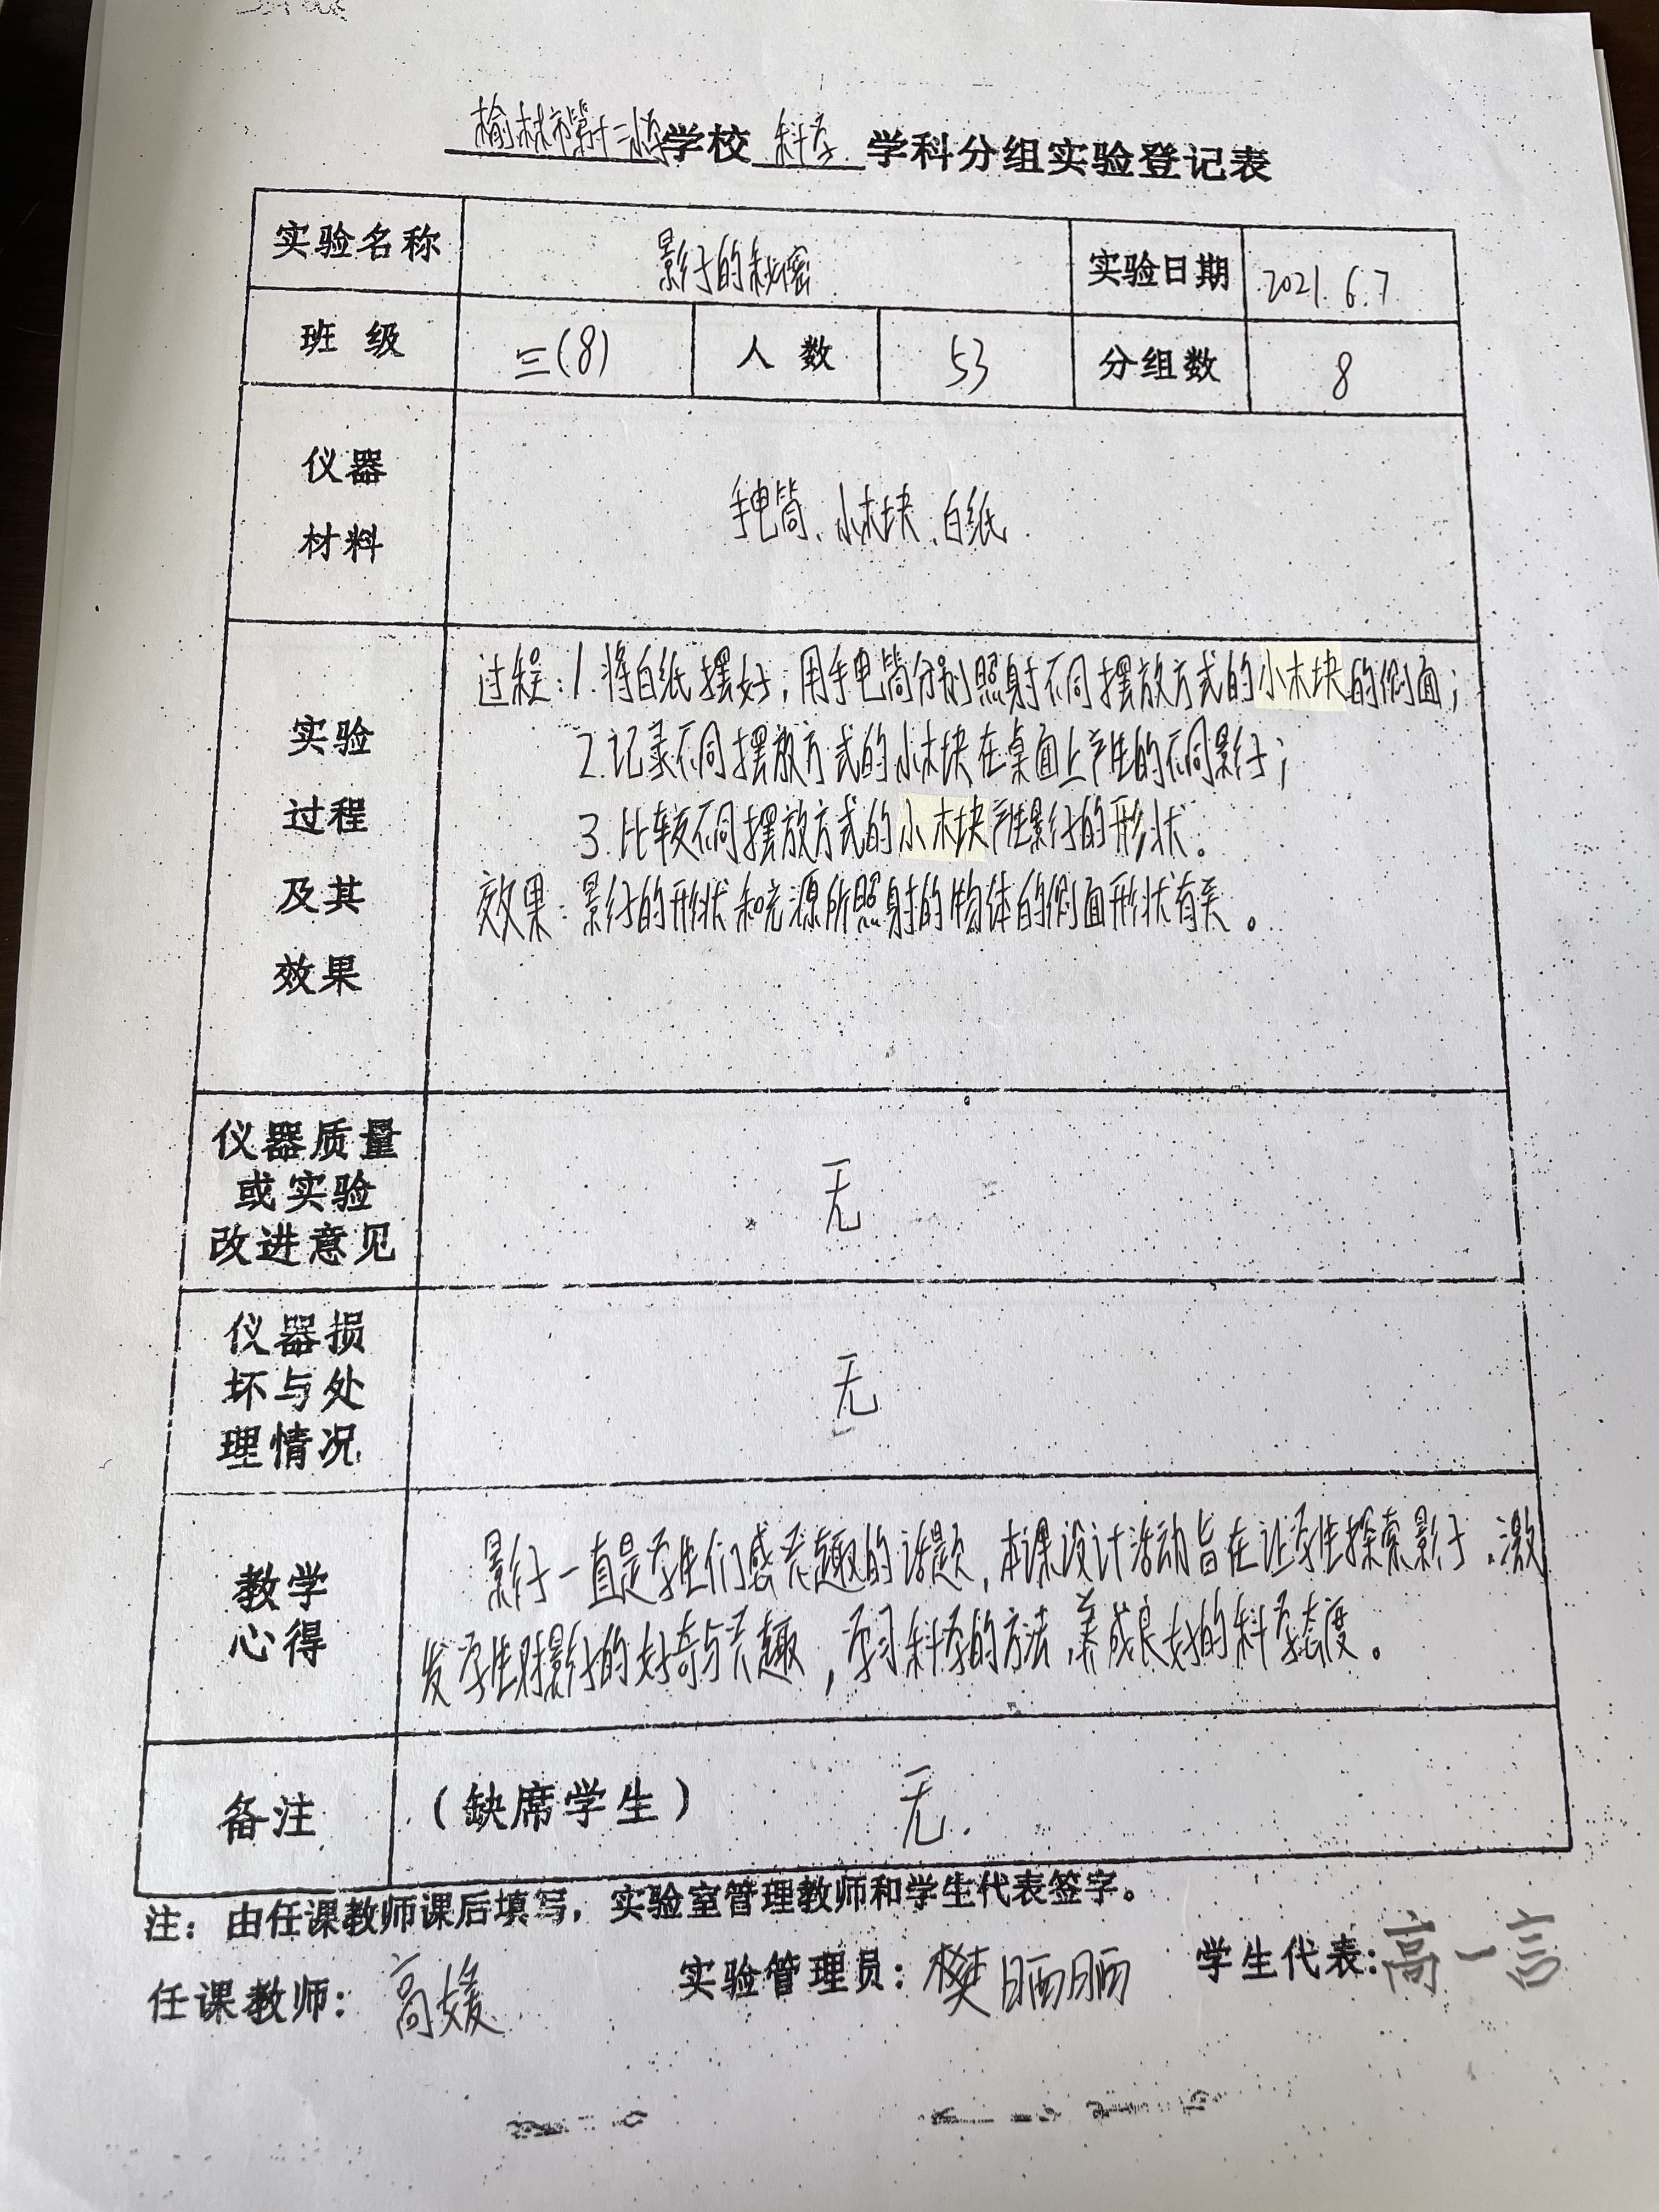 榆林市第十二小学学校 科学 学科分组实验登记表
实验名称 影子的秘密 实验日期 2021.6.7
班级 三(8) 人数 53 分组数 8
仪器
材料
手电筒、小木块、白纸.
实验
过程
及其
效果
过程:1.将白纸摆好,用手电筒分别照射不同摆放方式的小木块的侧面;
2.记录不同摆放方式的小木块在桌面上产生的不同影子;
3.比较不同摆放方式的小木块产生影子的形状。
效果:影子的形状和光源所照射的物体的侧面形状有关。
仪器质量
或实验
改进意见
无
仪器损
坏与处
理情况
无
教学
心得
影子一直是学生们感兴趣的话题,本课设计活动旨在让学生探索影子,激
发学生对影子的好奇与兴趣,学习科学的方法,养成良好的科学态度。
备注 (缺席学生) 无.
注:由任课教师课后填写,实验室管理教师和学生代表签字。
任课教师:高媛 实验管理员:樊晒晒 学生代表:高一言